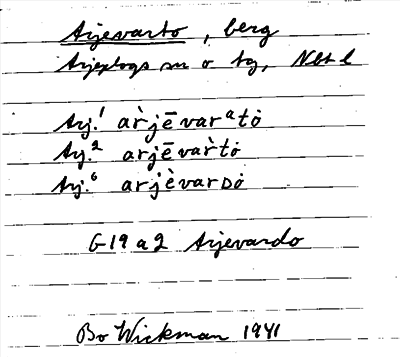 Arjevarto, berg
Arjeplogs sn o tg, Nbt l
Arj.¹ àrjēvarᵃtȯ
Arj.² arjēvàrtȯ
Arj.⁶ arjèvarᴅȯ
G19a2 Arjevardo
Bo Wickman 1941